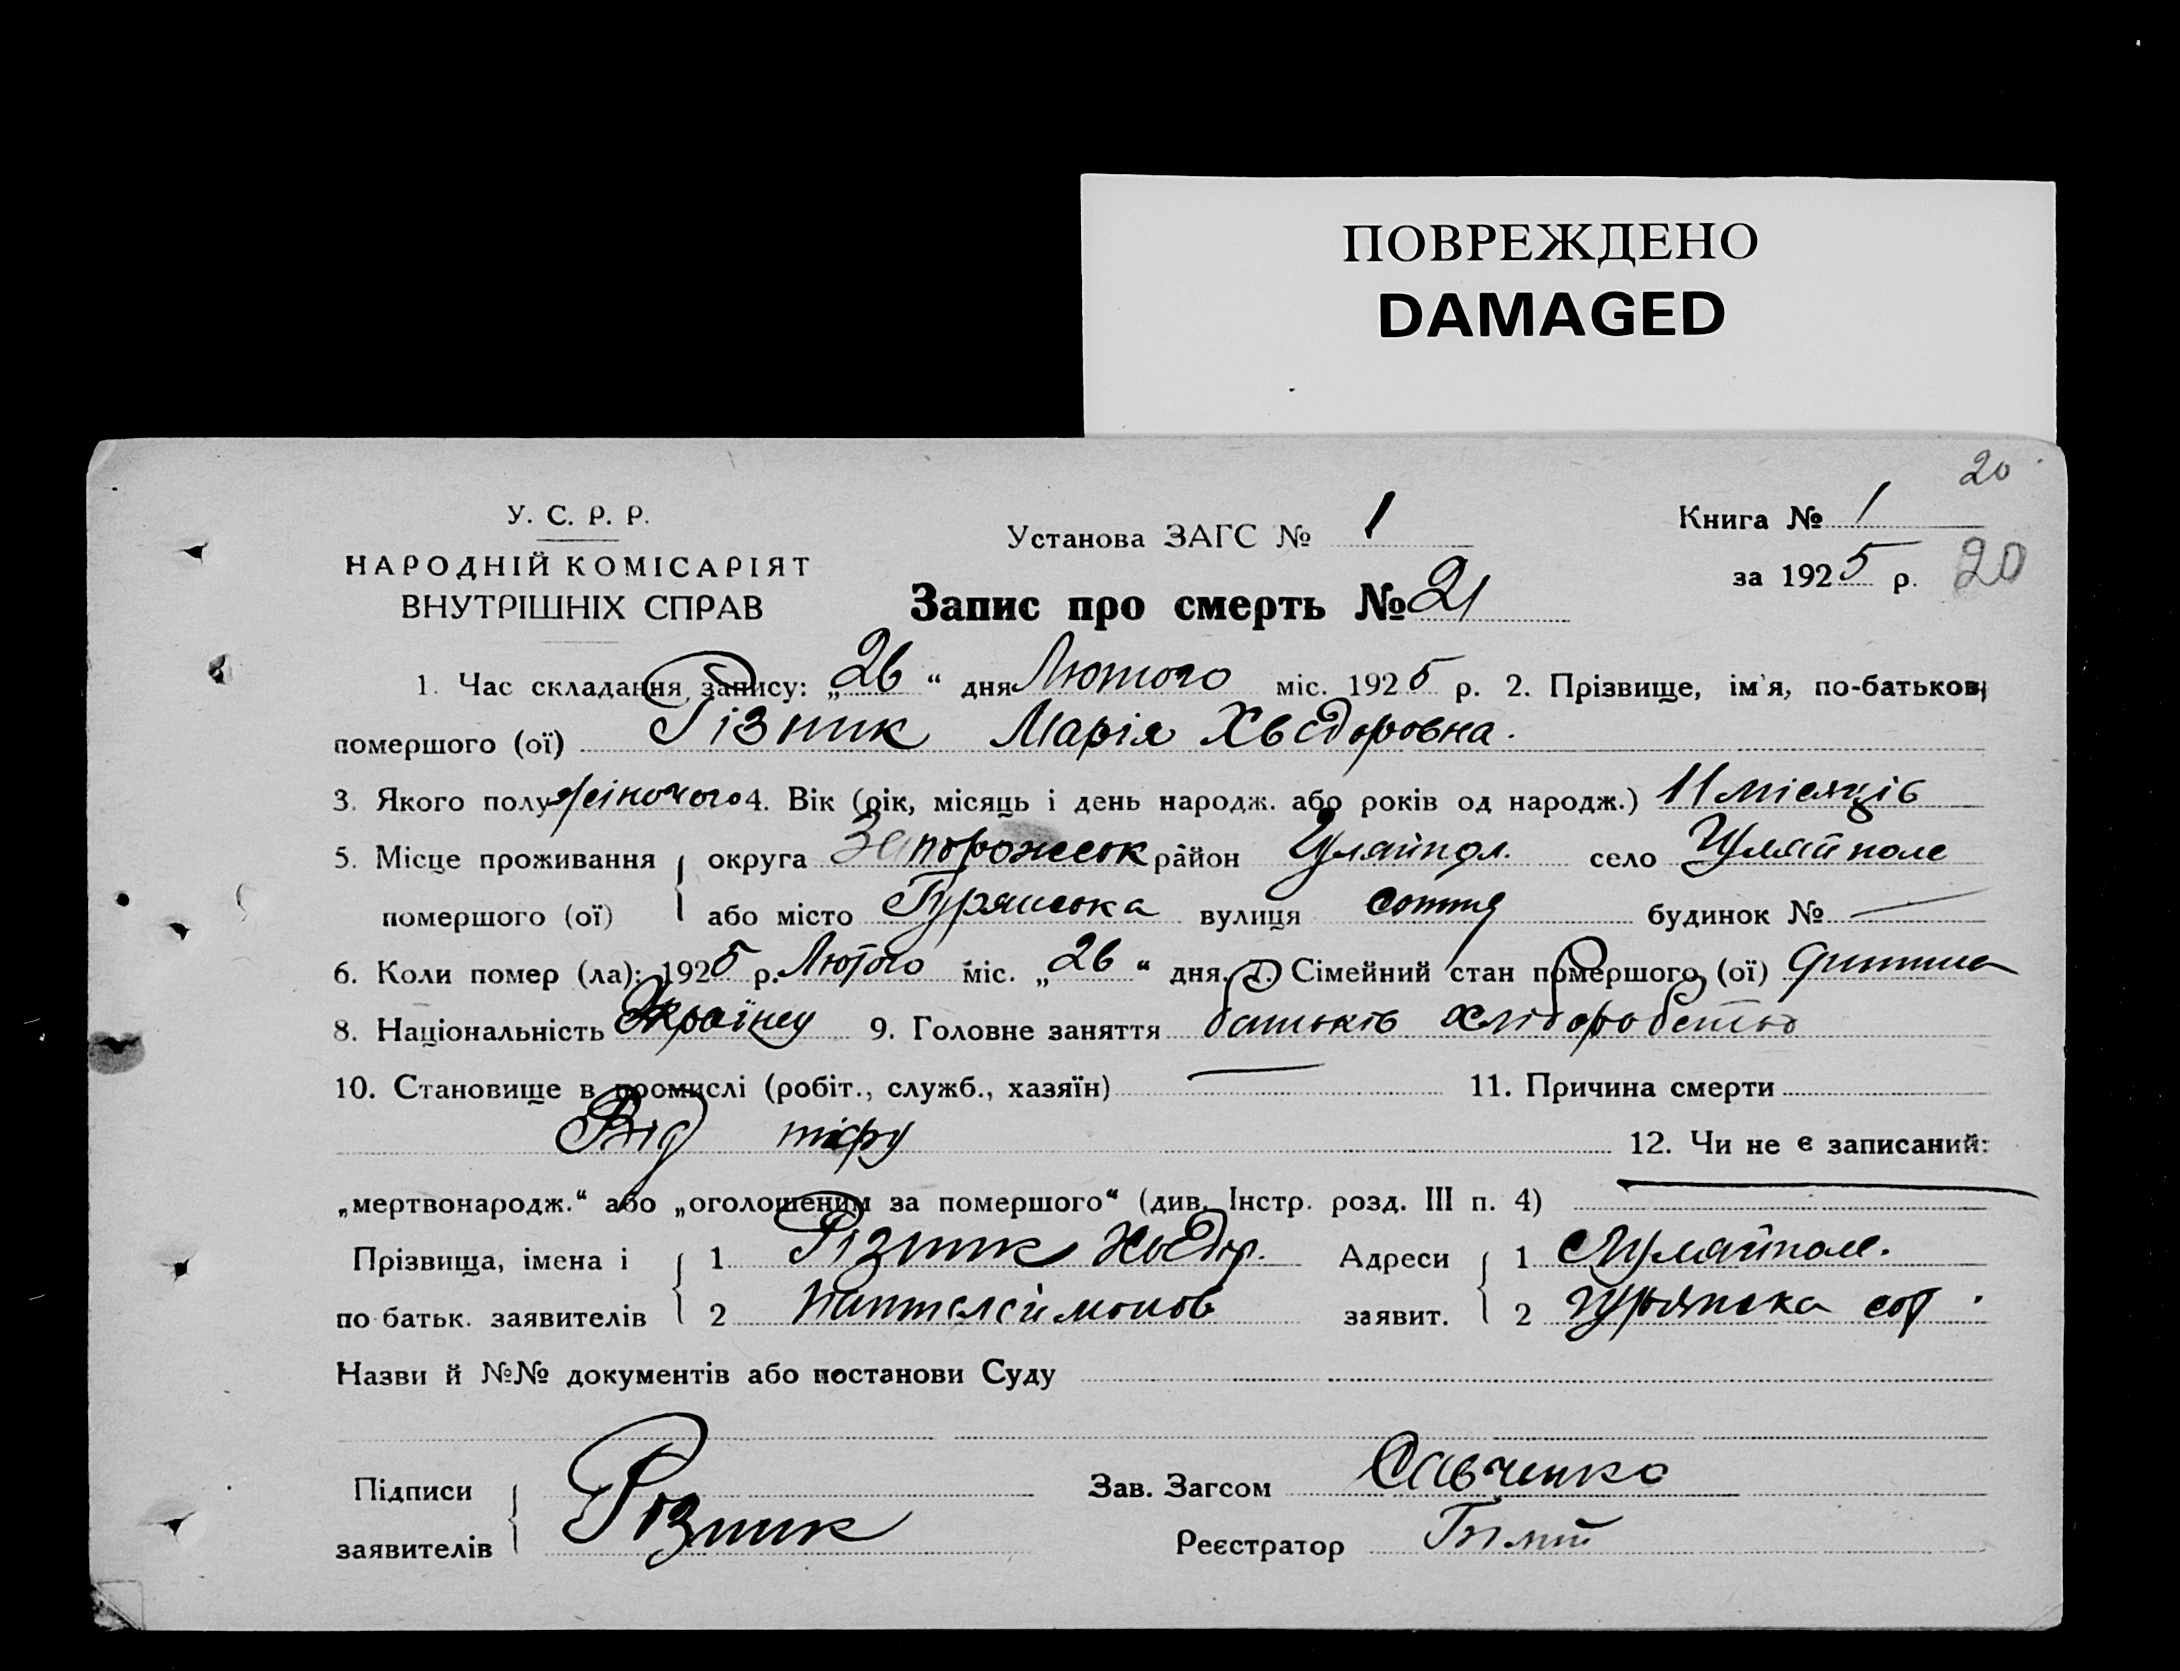 ПОВРЕЖДЕНО
DAMAGED
20
У. С. Р. Р.
НАРОДНІЙ КОМІСАРІЯТ
ВНУТРІШНІХ СПРАВ
Установа ЗАГС № 1
Книга № 1
за 1925 р. 20
Запис про смерть № 21
1. Час складання запису: „26“ дня Лютого міс. 1925 р. 2. Прізвище, ім'я, по-батькові
помершого (ої) Різник Марія Хведоровна.
3. Якого полу жіночого 4. Вік (рік, місяць і день народж. або років од народж.) 11 місяців
5. Місце проживання помершого (ої) округа Запорожськ район Гуляйпол. село Гуляйполе
або місто Гурянська вулиця сотня будинок № —
6. Коли помер (ла): 1925 р. Лютого міс. „26“ дня. 7. Сімейний стан помершого (ої) дитина
8. Національність 9. Головне заняття батьків хліборобство
10. Становище в промислі (робіт., служб., хазяїн) — 11. Причина смерти
Від 12. Чи не є записаний:
„мертвонародж.“ або „оголошеним за помершого“ (див. Інстр. розд. III п. 4) —
Прізвища, імена і по батьк. заявителів 1 Різник Хведір. Адреси заявит. 1 Гуляйполе.
2 Пантелеймонов 2 Гурянська сот.
Назви й №№ документів або постанови Суду
Підписи заявителів Різник
Зав. Загсом Савченко
Реєстратор